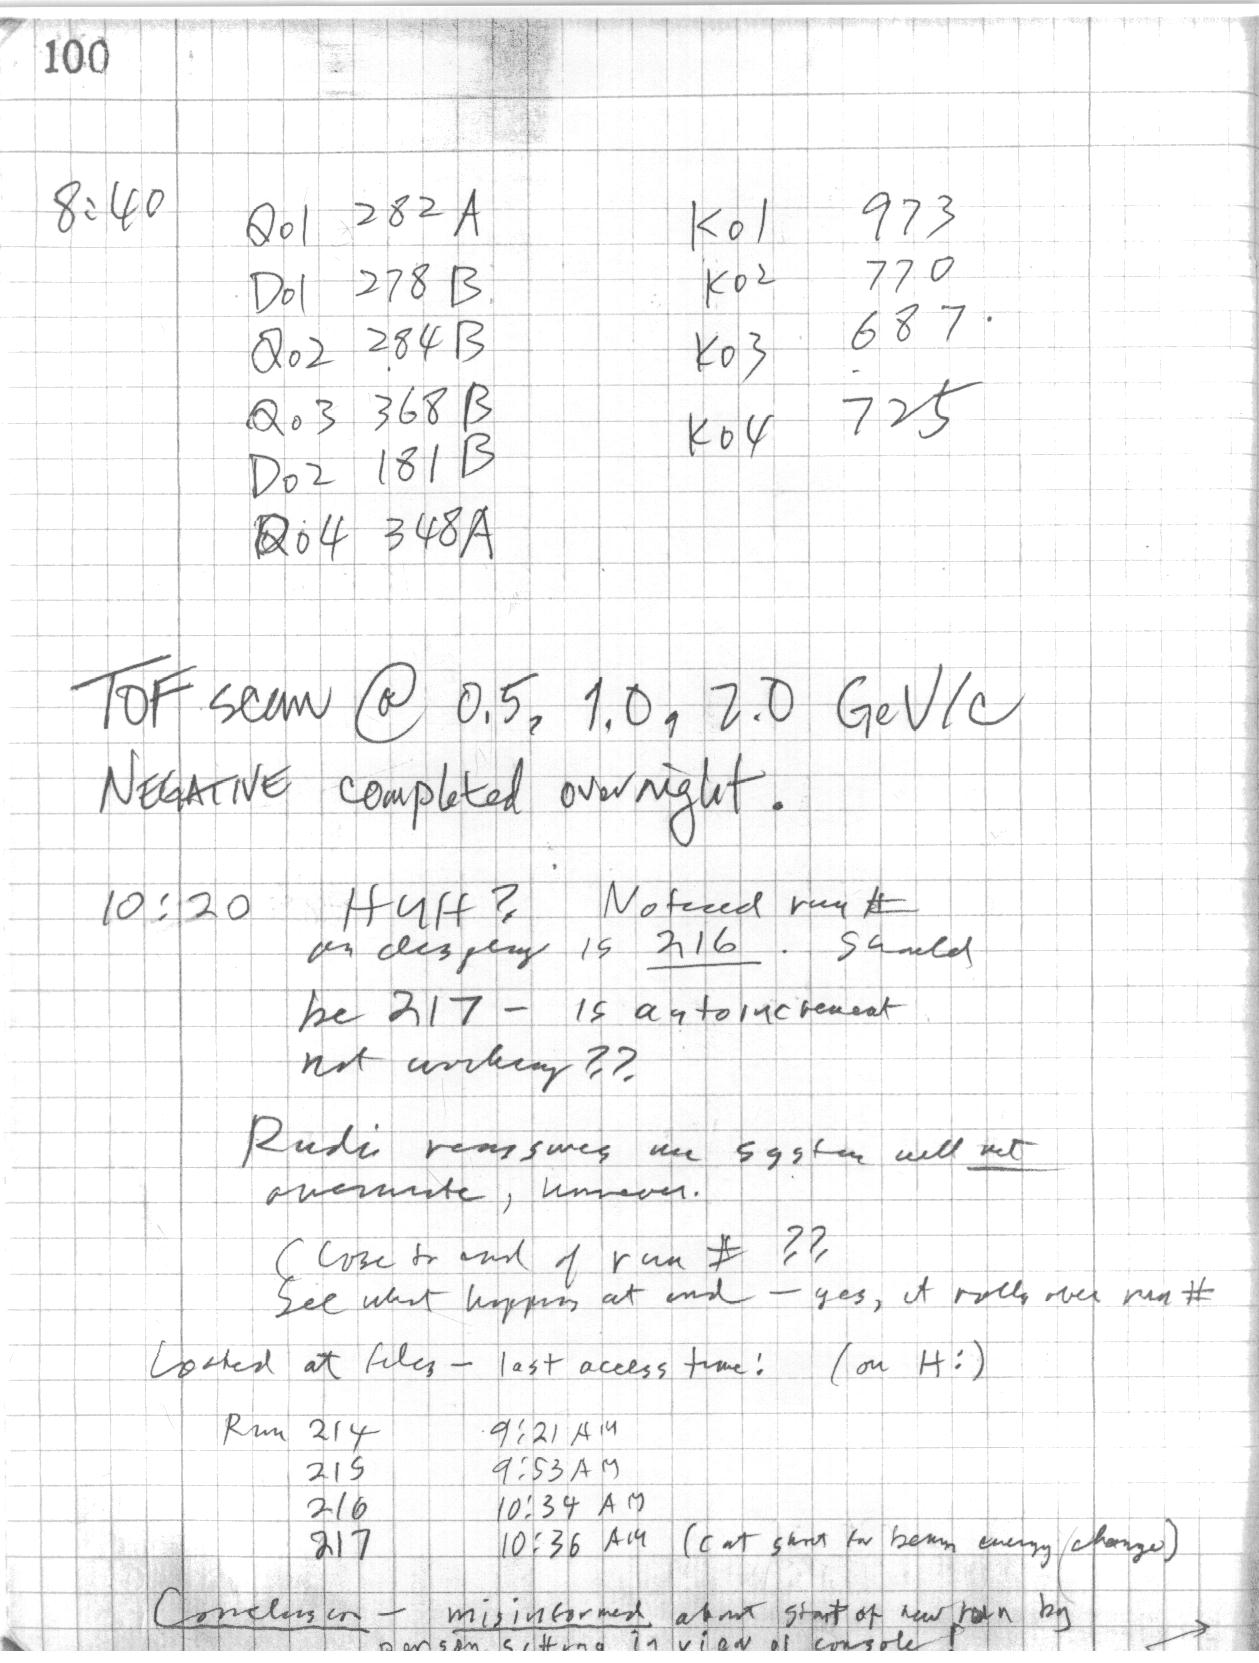 100
8:40 Q01 282 A K01 973
D01 278 B K02 770
Q02 284 B K03 687.
Q03 368 B K04 725
D02 181 B
Q04 348A
TOF scan @ 0.5, 1.0, 2.0 GeV/c
NEGATIVE completed overnight.
10:20 HUH? Noticed run #
on display is 216. Should
be 217 - is autoincrement
not working??
Rudi reassures me system will not
overwrite, however.
Close to end of run # ??
See what happens at end - yes, it rolls over run #
Looked at files - last access time: (on H:)
Run 214 9:21 AM
215 9:53 AM
216 10:34 AM
217 10:36 AM (cut short for beam energy change)
Conclusion - misinformed about start of new run by
person sitting in view of console!